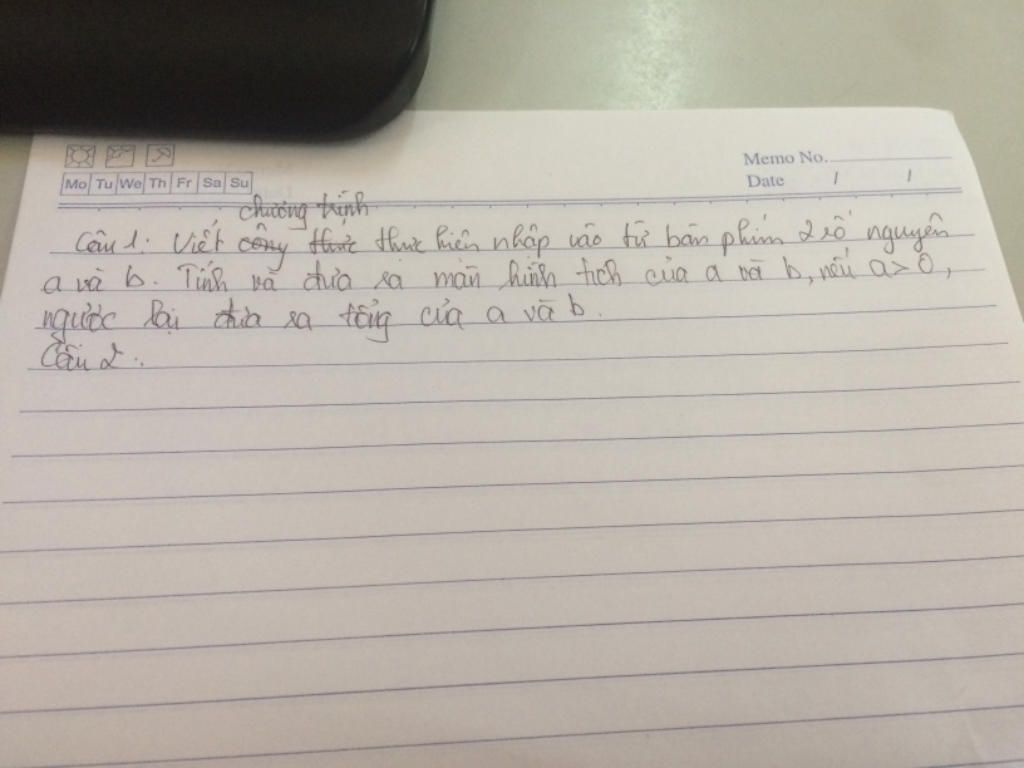 Memo No.
Mo Tu We Th Fr Sa Su
Date / /
chương trình
Câu 1: Viết công thức thực hiện nhập vào từ bàn phím 2 số nguyên
a và b. Tính và đưa ra màn hình tích của a và b, nếu a > 0,
ngược lại đưa ra tổng của a và b.
Câu 2: